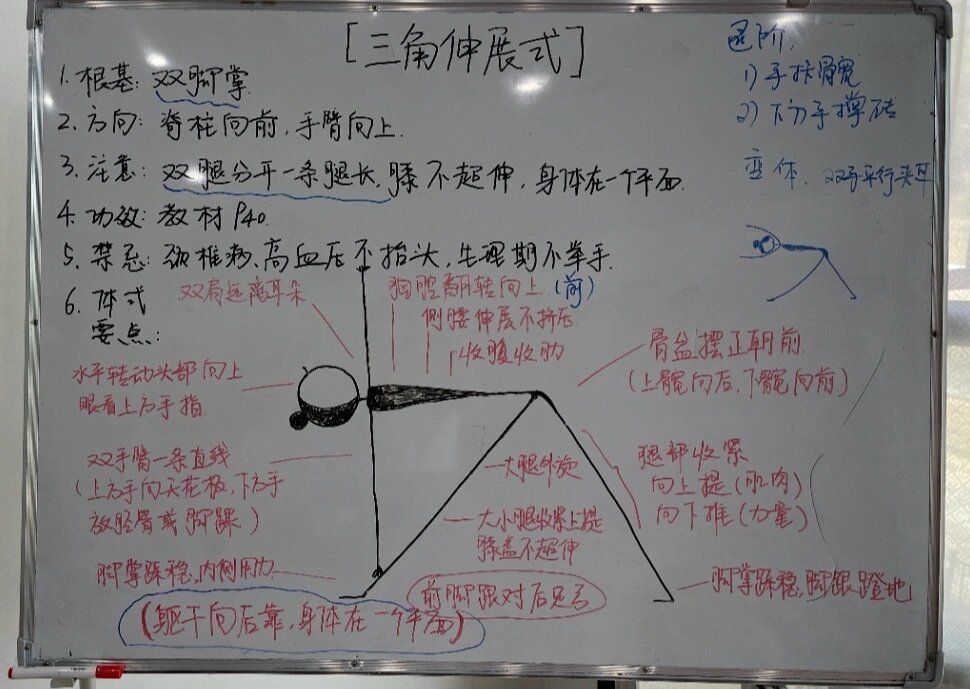 [三角伸展式]
1. 根基: 双脚掌
2. 方向: 脊柱向前, 手臂向上.
3. 注意: 双腿分开一条腿长, 膝不超伸, 身体在一个平面.
4. 功效: 教材 P40.
5. 禁忌: 颈椎病、高血压不抬头, 生理期不举手.
6. 体式
要点:
退阶:
1) 手扶骨宽
2) 下方手撑砖
变体. 双手平行头耳
双肩远离耳朵
胸腔翻转向上. (前)
侧腰伸展不挤压.
收腹收肋
水平转动头部向上
眼看上方手指.
骨盆摆正朝前.
(上髋向后, 下髋向前)
双手臂一条直线
(上方手向天花板, 下方手
放胫骨或脚踝)
大腿外旋
腿部收紧
向上提(肌肉)
向下推(力量)
大小腿收紧上提
膝盖不超伸
脚掌踩稳, 内侧用力
前脚跟对后足弓
脚掌踩稳, 脚跟蹬地
(躯干向后靠, 身体在一个平面)